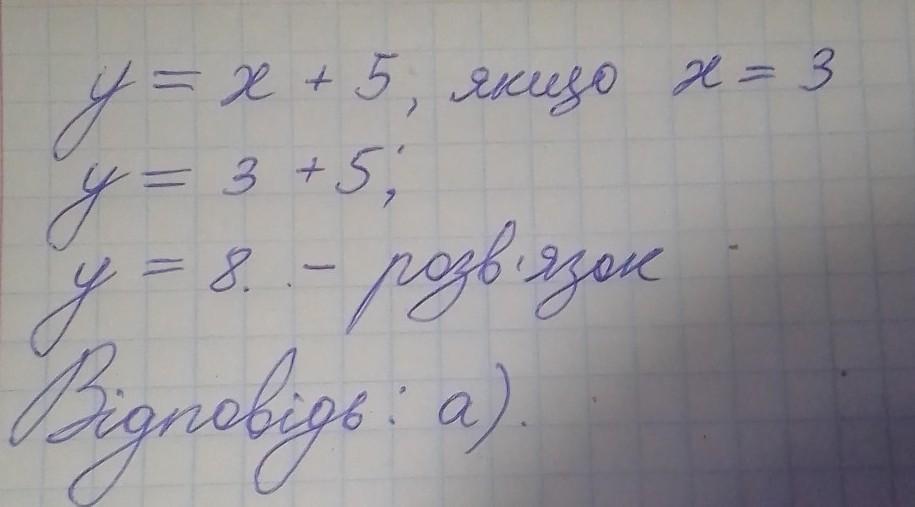 y = x + 5, якщо x = 3
y = 3 + 5;
y = 8. - розв'язок
Відповідь: а).